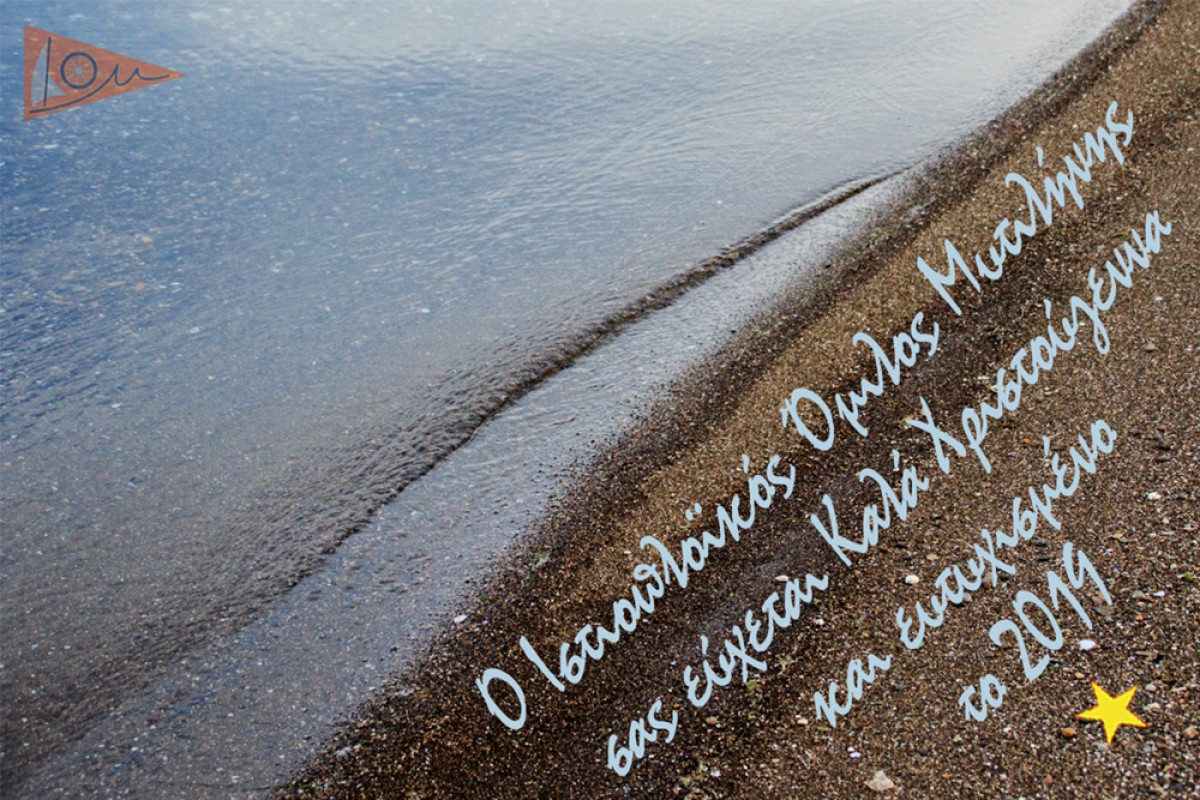 ΙΟΜ
Ο Ιστιοπλοϊκός Όμιλος Μυτιλήνης
σας εύχεται Καλά Χριστούγεννα
και ευτυχισμένο
το 2019